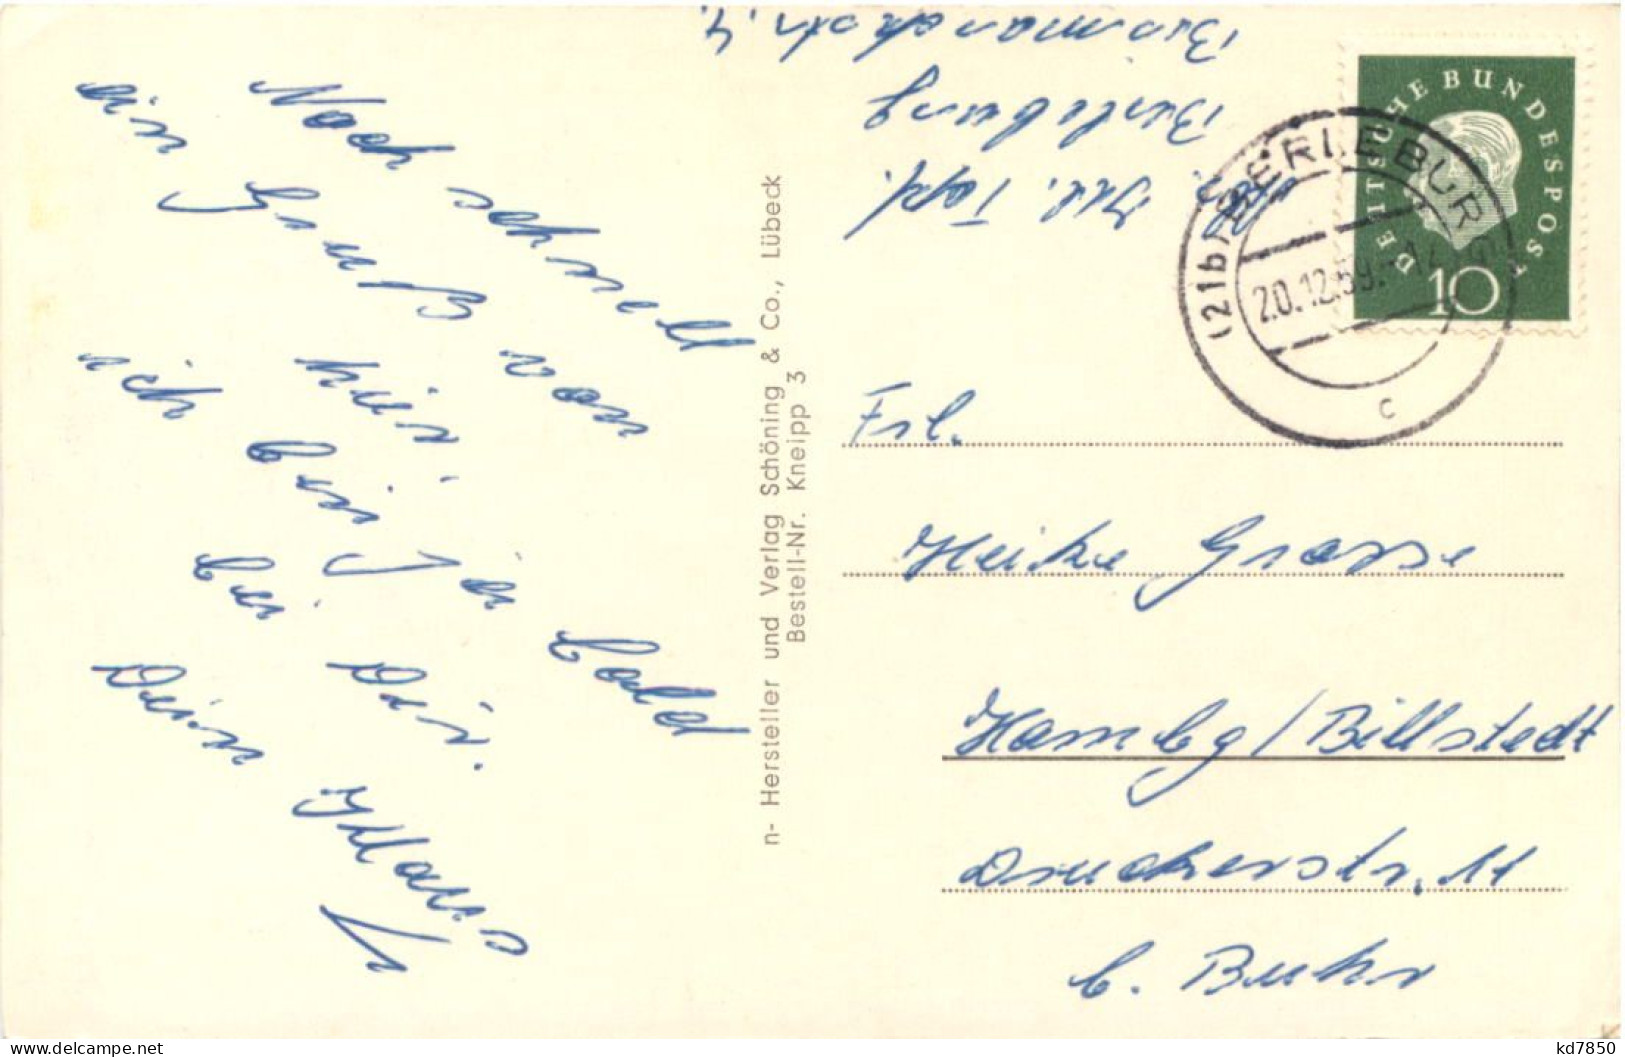 Noch schnell
ein Gruß von
hier
ich bin ja bald
bei Dir.
Dein Klaus
n- Hersteller und Verlag Schöning & Co., Lübeck
Bestell-Nr. Kneipp 3
Topf.
Berleburg
Bismarckstr. 4.
DEUTSCHE BUNDESPOST
10
(21b) BERLEBURG
20.12.59.-14
c
Frl.
Heike Grosse
Hambg/Billstedt
Druckerstr. 11
b. Buhr
kd7850